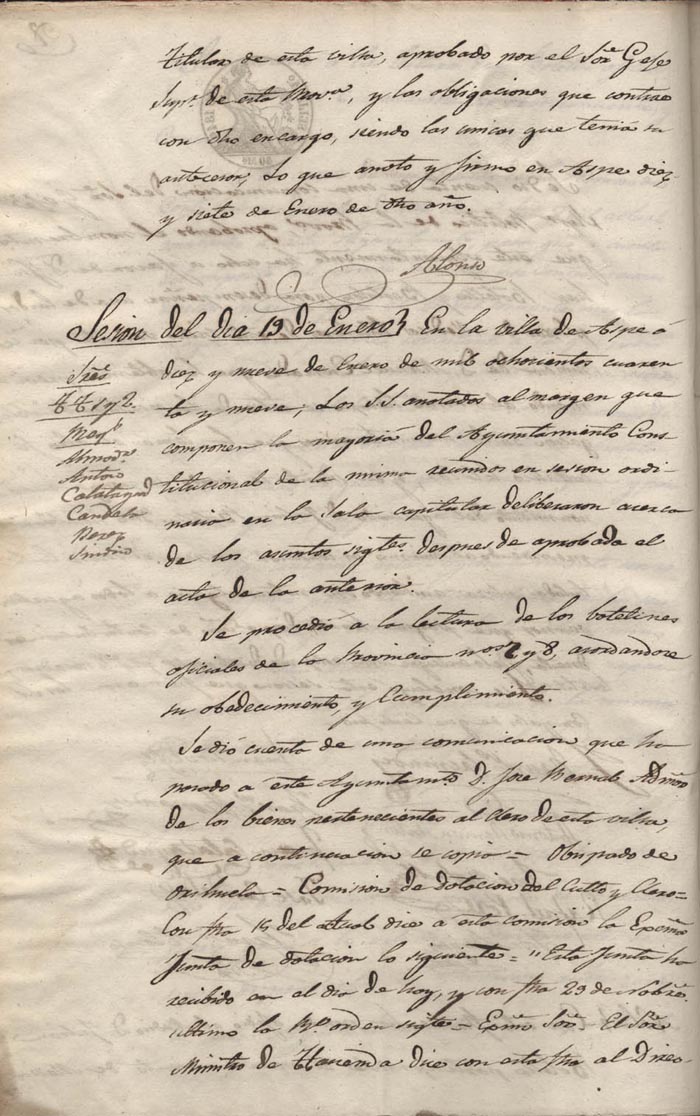 titular de esta villa, aprobado por el Sor. Gefe
Supr. de esta Prova., y las obligaciones que contrae
con dho encargo, siendo las unicas que tenia su
antecesor; Lo que anoto y firmo en Aspe diez
y siete de Enero de dho año.
Alonso
Sesion del dia 19 de Enero
En la villa de Aspe á
diez y nueve de Enero de mil ochocientos cuaren
ta y nueve; Los S.S. anotados al margen que
componen la mayoria del Ayuntamiento Cons
titucional de la misma reunidos en sesion ordi
naria en la Sala capitular deliberaron acerca
de los asuntos sigtes. despues de aprobada el
acta de la anterior.
Sres
Tt. 1 y 2.
Almoda.
Antoro
Calatayud
Candela
Perez
Sindico
Se procedió a la lectura de los boletines
oficiales de la Provincia nos 7 y 8, acordandose
su obedecimiento, y Cumplimiento.
Se dió cuenta de una comunicacion que ha
pasado á este Ayuntamto. D. Jose Bernabe Admor
de los bienes pertenecientes al Clero de esta villa,
que a continuacion se copia = Obispado de
Orihuela = Comision de dotacion del Culto y Clero =
Con fha 15 del actual dice a esta comision la Exma
Junta de dotacion lo siguiente = "Esta Junta ha
recibido en el dia de hoy, y con fha 29 de Nobre.
ultimo la Rl. orden sigte = Exmo Sor. = El Sor.
Ministro de Hacienda dice con esta fha al Direc-